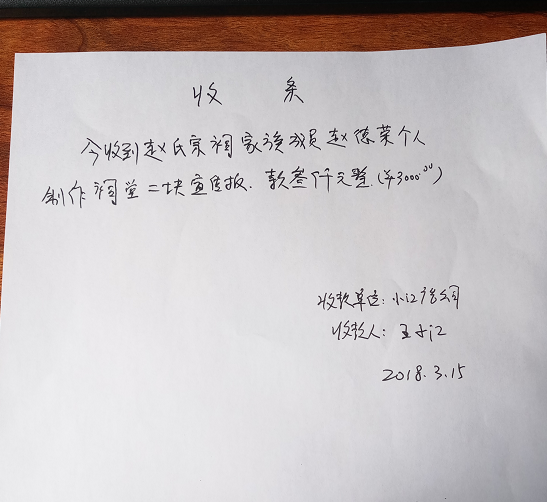 收 条
今收到赵氏宗祠家族成员赵德荣个人
制作祠堂二块宣传板. 款叁仟元整.(¥3000.00)
收款单位: 小江广告公司
收款人: 王小江
2018.3.15